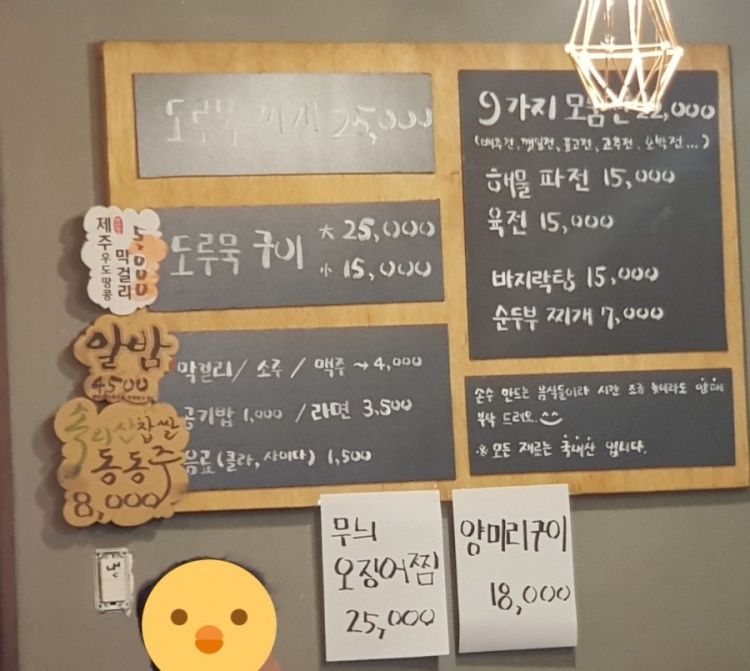 도루묵 찌개 25,000
도루묵 구이 大 25,000
小 15,000
막걸리/ 소주 / 맥주 → 4,000
공기밥 1,000 / 라면 3,500
음료 (콜라, 사이다) 1,500
9가지 모듬전 22,000
(배추전, 깻잎전, 표고전, 고추전, 호박전...)
해물 파전 15,000
육전 15,000
바지락탕 15,000
순두부 찌개 7,000
손수 만드는 음식들이라 시간 조금 늦더라도 양해
부탁 드려요.
※ 모든 재료는 국내산 입니다.
제주 우도땅콩
막걸리
5000
알밤
4500
속리산찹쌀
동동주
8,000
무늬
오징어찜
25,000
양미리구이
18,000
냉